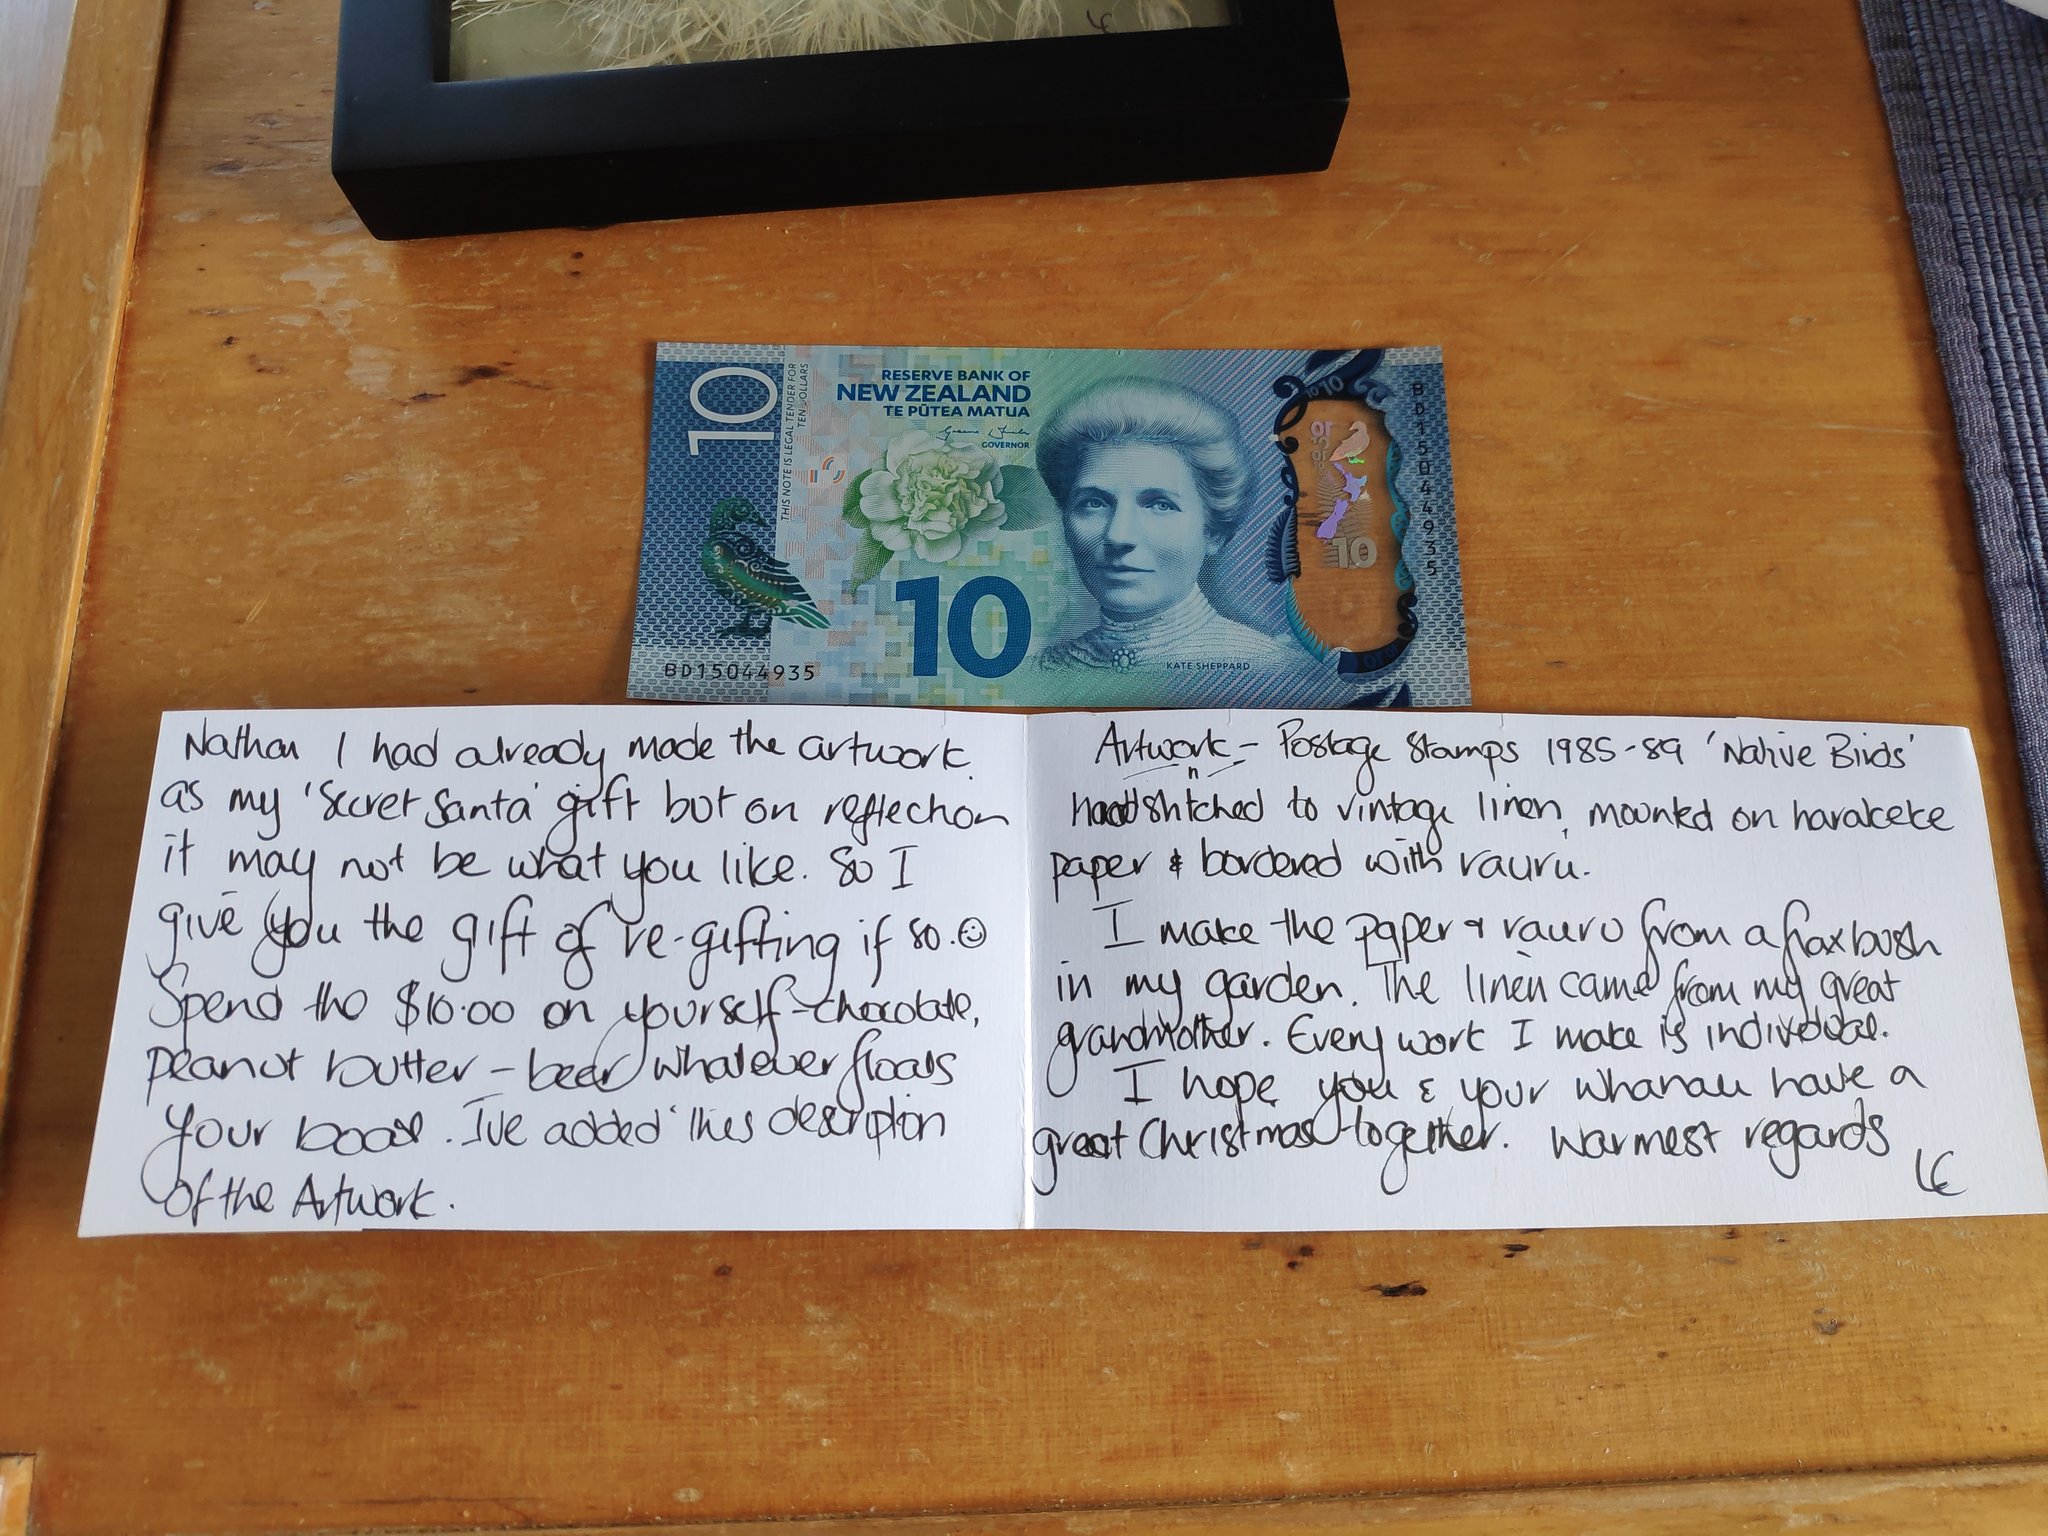 LE
10
THIS NOTE IS LEGAL TENDER FOR
TEN DOLLARS
RESERVE BANK OF
NEW ZEALAND
TE PŪTEA MATUA
GOVERNOR
10
KATE SHEPPARD
BD15044935
10
BD15044935
Nathan I had already made the artwork
as my 'Secret Santa' gift but on reflection
it may not be what you like. So I
give you the gift of re-gifting if so. ☺
Spend the $10.00 on yourself - chocolate,
peanut butter - beer whatever floats
your boat. I've added this description
of the Artwork.
Artwork - Postage Stamps 1985-89 'Native Birds'
handstitched to vintage linen, mounted on harakeke
paper & bordered with rauru.
I make the paper & rauru from a flax bush
in my garden. The linen came from my great
grandmother. Every work I make is individual.
I hope you & your whanau have a
great Christmas together. Warmest regards
LE